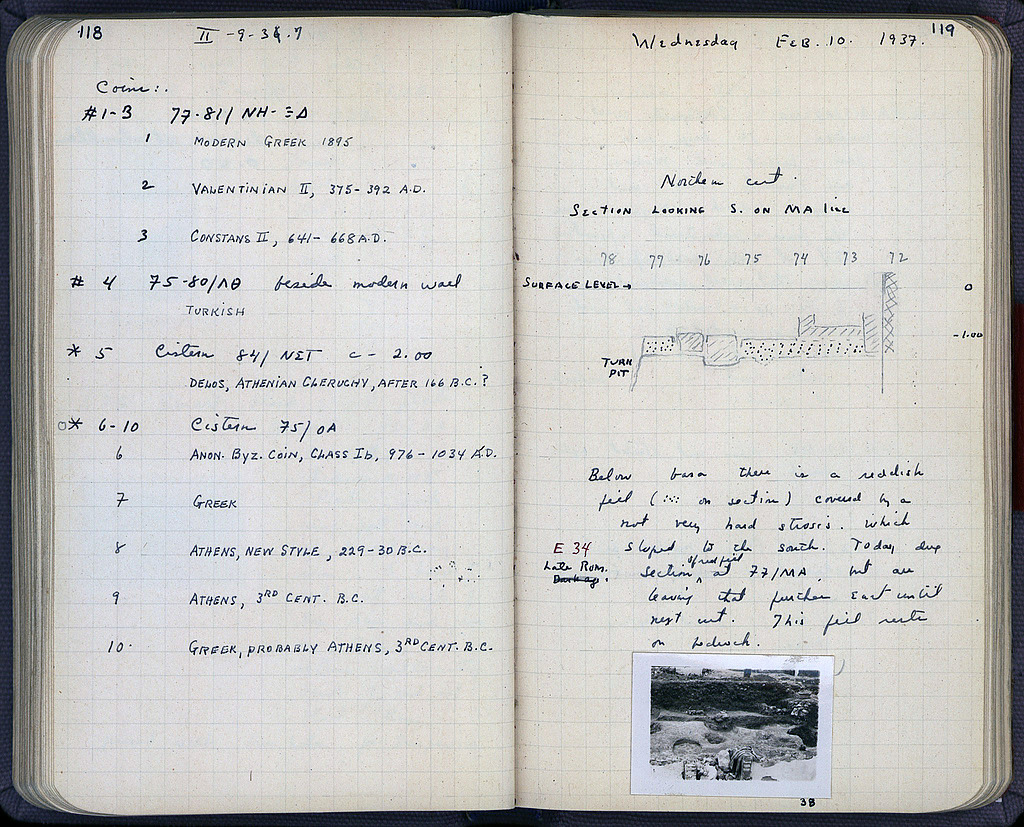 118
II - 9 - 37
Coins:
#1-3 77-81/ NH-ΞΔ
1 MODERN GREEK 1895
2 VALENTINIAN II, 375-392 A.D.
3 CONSTANS II, 641-668 A.D.
# 4 75-80/ΛΘ beside modern wall
TURKISH
* 5 Cistern 84/ c - 2.00
DELOS, ATHENIAN CLERUCHY, AFTER 166 B.C.?
* 6-10 Cistern 75/OA
6 ANON. BYZ. COIN, CLASS Ib, 976-1034 A.D.
7 GREEK
8 ATHENS, NEW STYLE, 229-30 B.C.
9 ATHENS, 3RD CENT. B.C.
10. GREEK, PROBABLY ATHENS, 3RD CENT. B.C.
119
Wednesday FEB. 10. 1937.
Northern cut.
SECTION LOOKING S. ON MA line
78 77 76 75 74 73 72
SURFACE LEVEL→
0
-1.00
TURK
PIT
Below there is a reddish
fill (::: on section) covered by a
not very hard strosis. which
E 34 sloped to the south. Today dug
Late Rom. section, of red fill at 77/MA, but are
Dark ag. leaving that further East until
next cut. This fill rests
on bedrock.
38